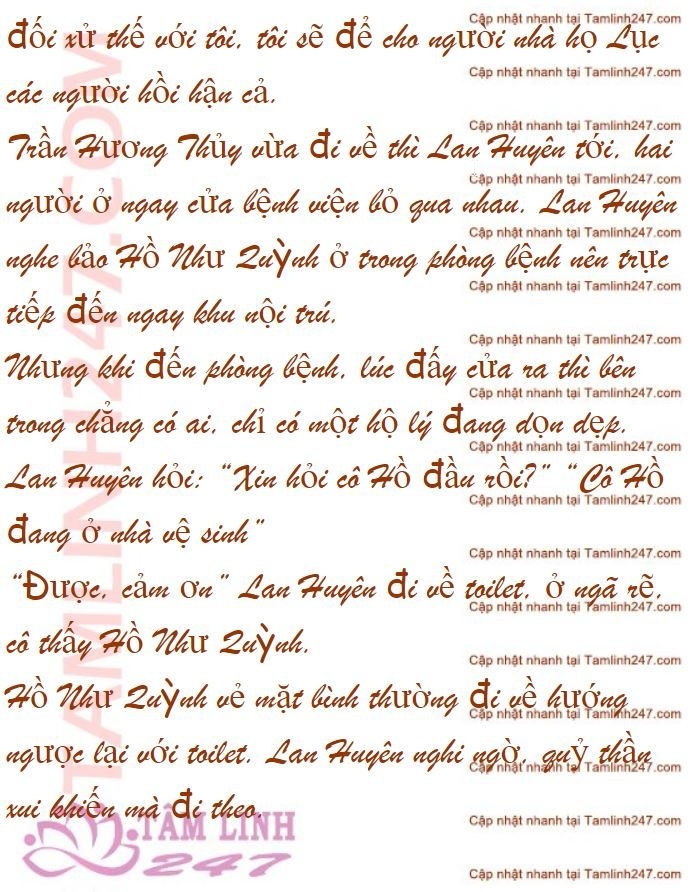 Cập nhật nhanh tại Tamlinh247.com
đối xử thế với tôi, tôi sẽ để cho người nhà họ Lục
Cập nhật nhanh tại Tamlinh247.com
các người hồi hận cả.
Cập nhật nhanh tại Tamlinh247.com
Trần Hương Thủy vừa đi về thì Lan Huyên tới, hai
Cập nhật nhanh tại Tamlinh247.com
người ở ngay cửa bệnh viện bỏ qua nhau. Lan Huyên
Cập nhật nhanh tại Tamlinh247.com
nghe bảo Hồ Như Quỳnh ở trong phòng bệnh nên trực
Cập nhật nhanh tại Tamlinh247.com
tiếp đến ngay khu nội trú.
Cập nhật nhanh tại Tamlinh247.com
Nhưng khi đến phòng bệnh, lúc đấy cửa ra thì bên
Cập nhật nhanh tại Tamlinh247.com
trong chẳng có ai, chỉ có một hộ lý đang dọn dẹp.
Cập nhật nhanh tại Tamlinh247.com
Lan Huyên hỏi: “Xin hỏi cô Hồ đầu rồi?” “Cô Hồ
Cập nhật nhanh tại Tamlinh247.com
đang ở nhà vệ sinh”
Cập nhật nhanh tại Tamlinh247.com
“Được, cảm ơn” Lan Huyên đi về toilet, ở ngã rẽ,
Cập nhật nhanh tại Tamlinh247.com
cô thấy Hồ Như Quỳnh.
Cập nhật nhanh tại Tamlinh247.com
Hồ Như Quỳnh vẻ mặt bình thường đi về hướng
Cập nhật nhanh tại Tamlinh247.com
ngược lại với toilet. Lan Huyên nghi ngờ, quỷ thần
Cập nhật nhanh tại Tamlinh247.com
xui khiến mà đi theo.
Cập nhật nhanh tại Tamlinh247.com
Cập nhật nhanh tại Tamlinh247.com
TAMLINH247.COM
TÂM LINH
247